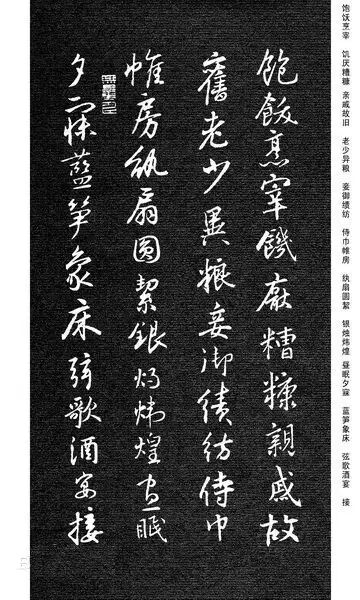 饱饫烹宰 饥厌糟糠 亲戚故旧 老少异粮 妾御绩纺 侍巾帷房 纨扇圆絜 银烛炜煌 昼眠夕寐 蓝笋象床 弦歌酒宴 接
飽飫烹宰饑厭糟糠親戚故
舊老少異糧妾御績紡侍巾
帷房紈扇圓絜銀燭煒煌晝眠
夕寐藍笋象床弦歌酒宴接